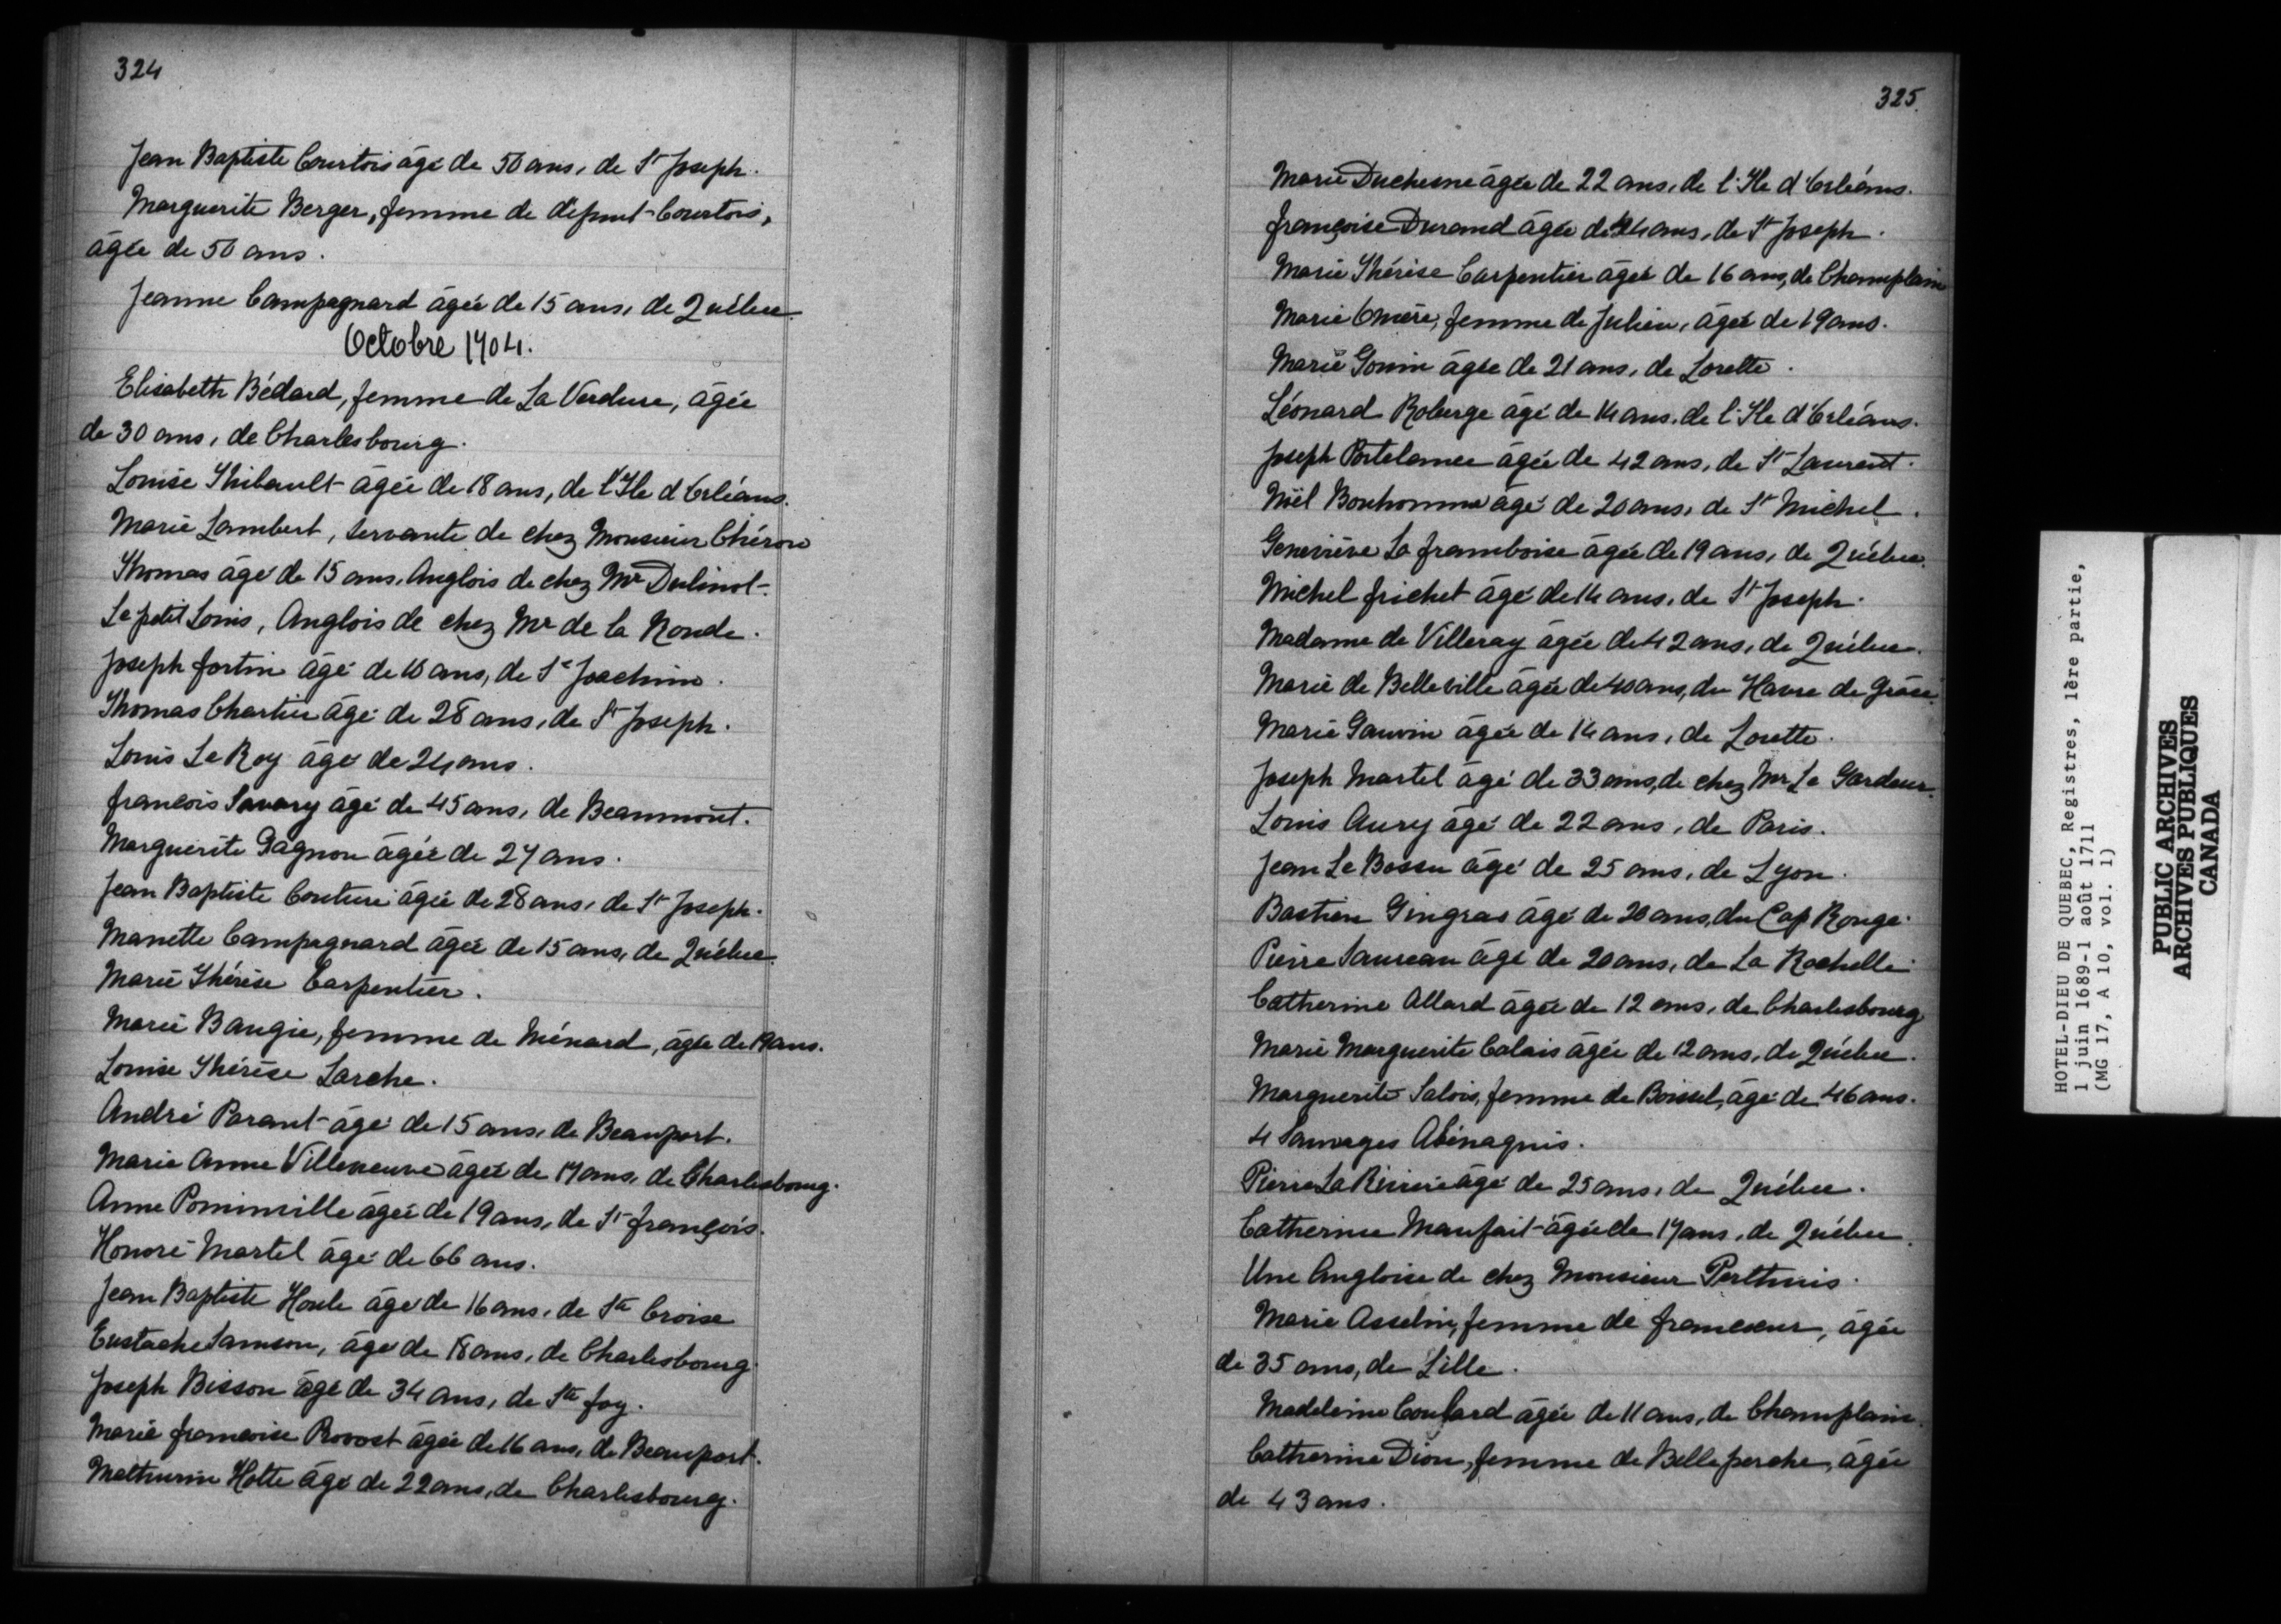 324
Jean Baptiste Courtois âgé de 50 ans, de St Joseph.
Marguerite Berger, femme de dépunt Courtois,
âgée de 50 ans.
Jeanne Campagnard âgée de 15 ans, de Québec.
Octobre 1704.
Elisabeth Bédard, femme de La Verdure, âgée
de 30 ans, de Charlesbourg.
Louise Thibault âgée de 18 ans, de l'Ile d'Orléans.
Marie Lambert, servante de chez Monsieur Chéron
Thomas âgé de 15 ans, Anglois de chez Mr Dulinot.
Le petit Louis, Anglois de chez Mr de la Ronde.
Joseph fortin âgé de 16 ans, de St Joachim.
Thomas Chartier âgé de 28 ans, de St Joseph.
Louis Le Roy âgé de 24 ans.
francois Savary âgé de 45 ans, de Beaumont.
Marguerite Gagnon âgée de 27 ans.
Jean Baptiste Couture âgée de 28 ans, de St Joseph.
Manette Campagnard âgée de 15 ans, de Québec.
Marie Thérèse Carpentier.
Marie Baugie, femme de Ménard, âgée de 19 ans.
Louise Thérèse Larche.
André Parant âgé de 15 ans, de Beauport.
Marie Anne Villeneuve âgée de 17 ans, de Charlesbourg.
Anne Pominville âgée de 19 ans, de St françois.
Honoré Martel âgé de 66 ans.
Jean Baptiste Houle âgé de 16 ans, de Ste Croise
Eustache Samson, âgé de 18 ans, de Charlesbourg.
Joseph Bisson âgé de 34 ans, de Ste foy.
Marie francoise Provost âgée de 16 ans, de Beauport.
Mathurin Hotte âgé de 22 ans, de Charlesbourg.
325.
Marie Duchesne âgée de 22 ans, de l'Ile d'Orléans.
françoise Durand âgée de 24 ans, de St Joseph.
Marie Thérèse Carpentier âgée de 16 ans, de Champlain
Marie Émère, femme de Julien, âgée de 19 ans.
Marie Gonin âgée de 21 ans, de Lorette.
Léonard Roberge âgé de 14 ans, de l'Ile d'Orléans.
Joseph Portelance âgée de 42 ans, de St Laurent.
Noël Bonhomme âgé de 20 ans, de St Michel.
Geneviève La framboise âgée de 19 ans, de Québec.
Michel frichet âgé de 14 ans, de St Joseph.
Madame de Villeray âgée de 42 ans, de Québec.
Marie de Belleville âgée de 40 ans, du Havre de Grâce.
Marie Gauvin âgée de 14 ans, de Lorette.
Joseph Martel âgé de 33 ans, de chez Mr Le Gardeur.
Louis Aury âgé de 22 ans, de Paris.
Jean Le Bossu âgé de 25 ans, de Lyon.
Bastien Gingras âgé de 20 ans, du Cap Rouge.
Pierre Saureau âgé de 20 ans, de La Rochelle.
Catherine Allard âgée de 12 ans, de Charlesbourg
Marie Marguerite Calais âgée de 12 ans, de Québec.
Marguerite Salois, femme de Boissel, âgé de 46 ans.
4 Sauvages Abénaquis.
Pierre La Rivière âgé de 25 ans, de Québec.
Catherine Maufait âgée de 17 ans, de Québec.
Une Angloise de chez Monsieur Perthuis.
Marie Asselin, femme de francoeur, âgée
de 35 ans, de Lille.
Madeleine Coulard âgée de 11 ans, de Champlain.
Catherine Dion, femme de Belleperche, âgée
de 43 ans.
HOTEL-DIEU DE QUEBEC, Registres, 1ère partie,
1 juin 1689-1 août 1711
(MG 17, A 10, vol. 1)
PUBLIC ARCHIVES
ARCHIVES PUBLIQUES
CANADA